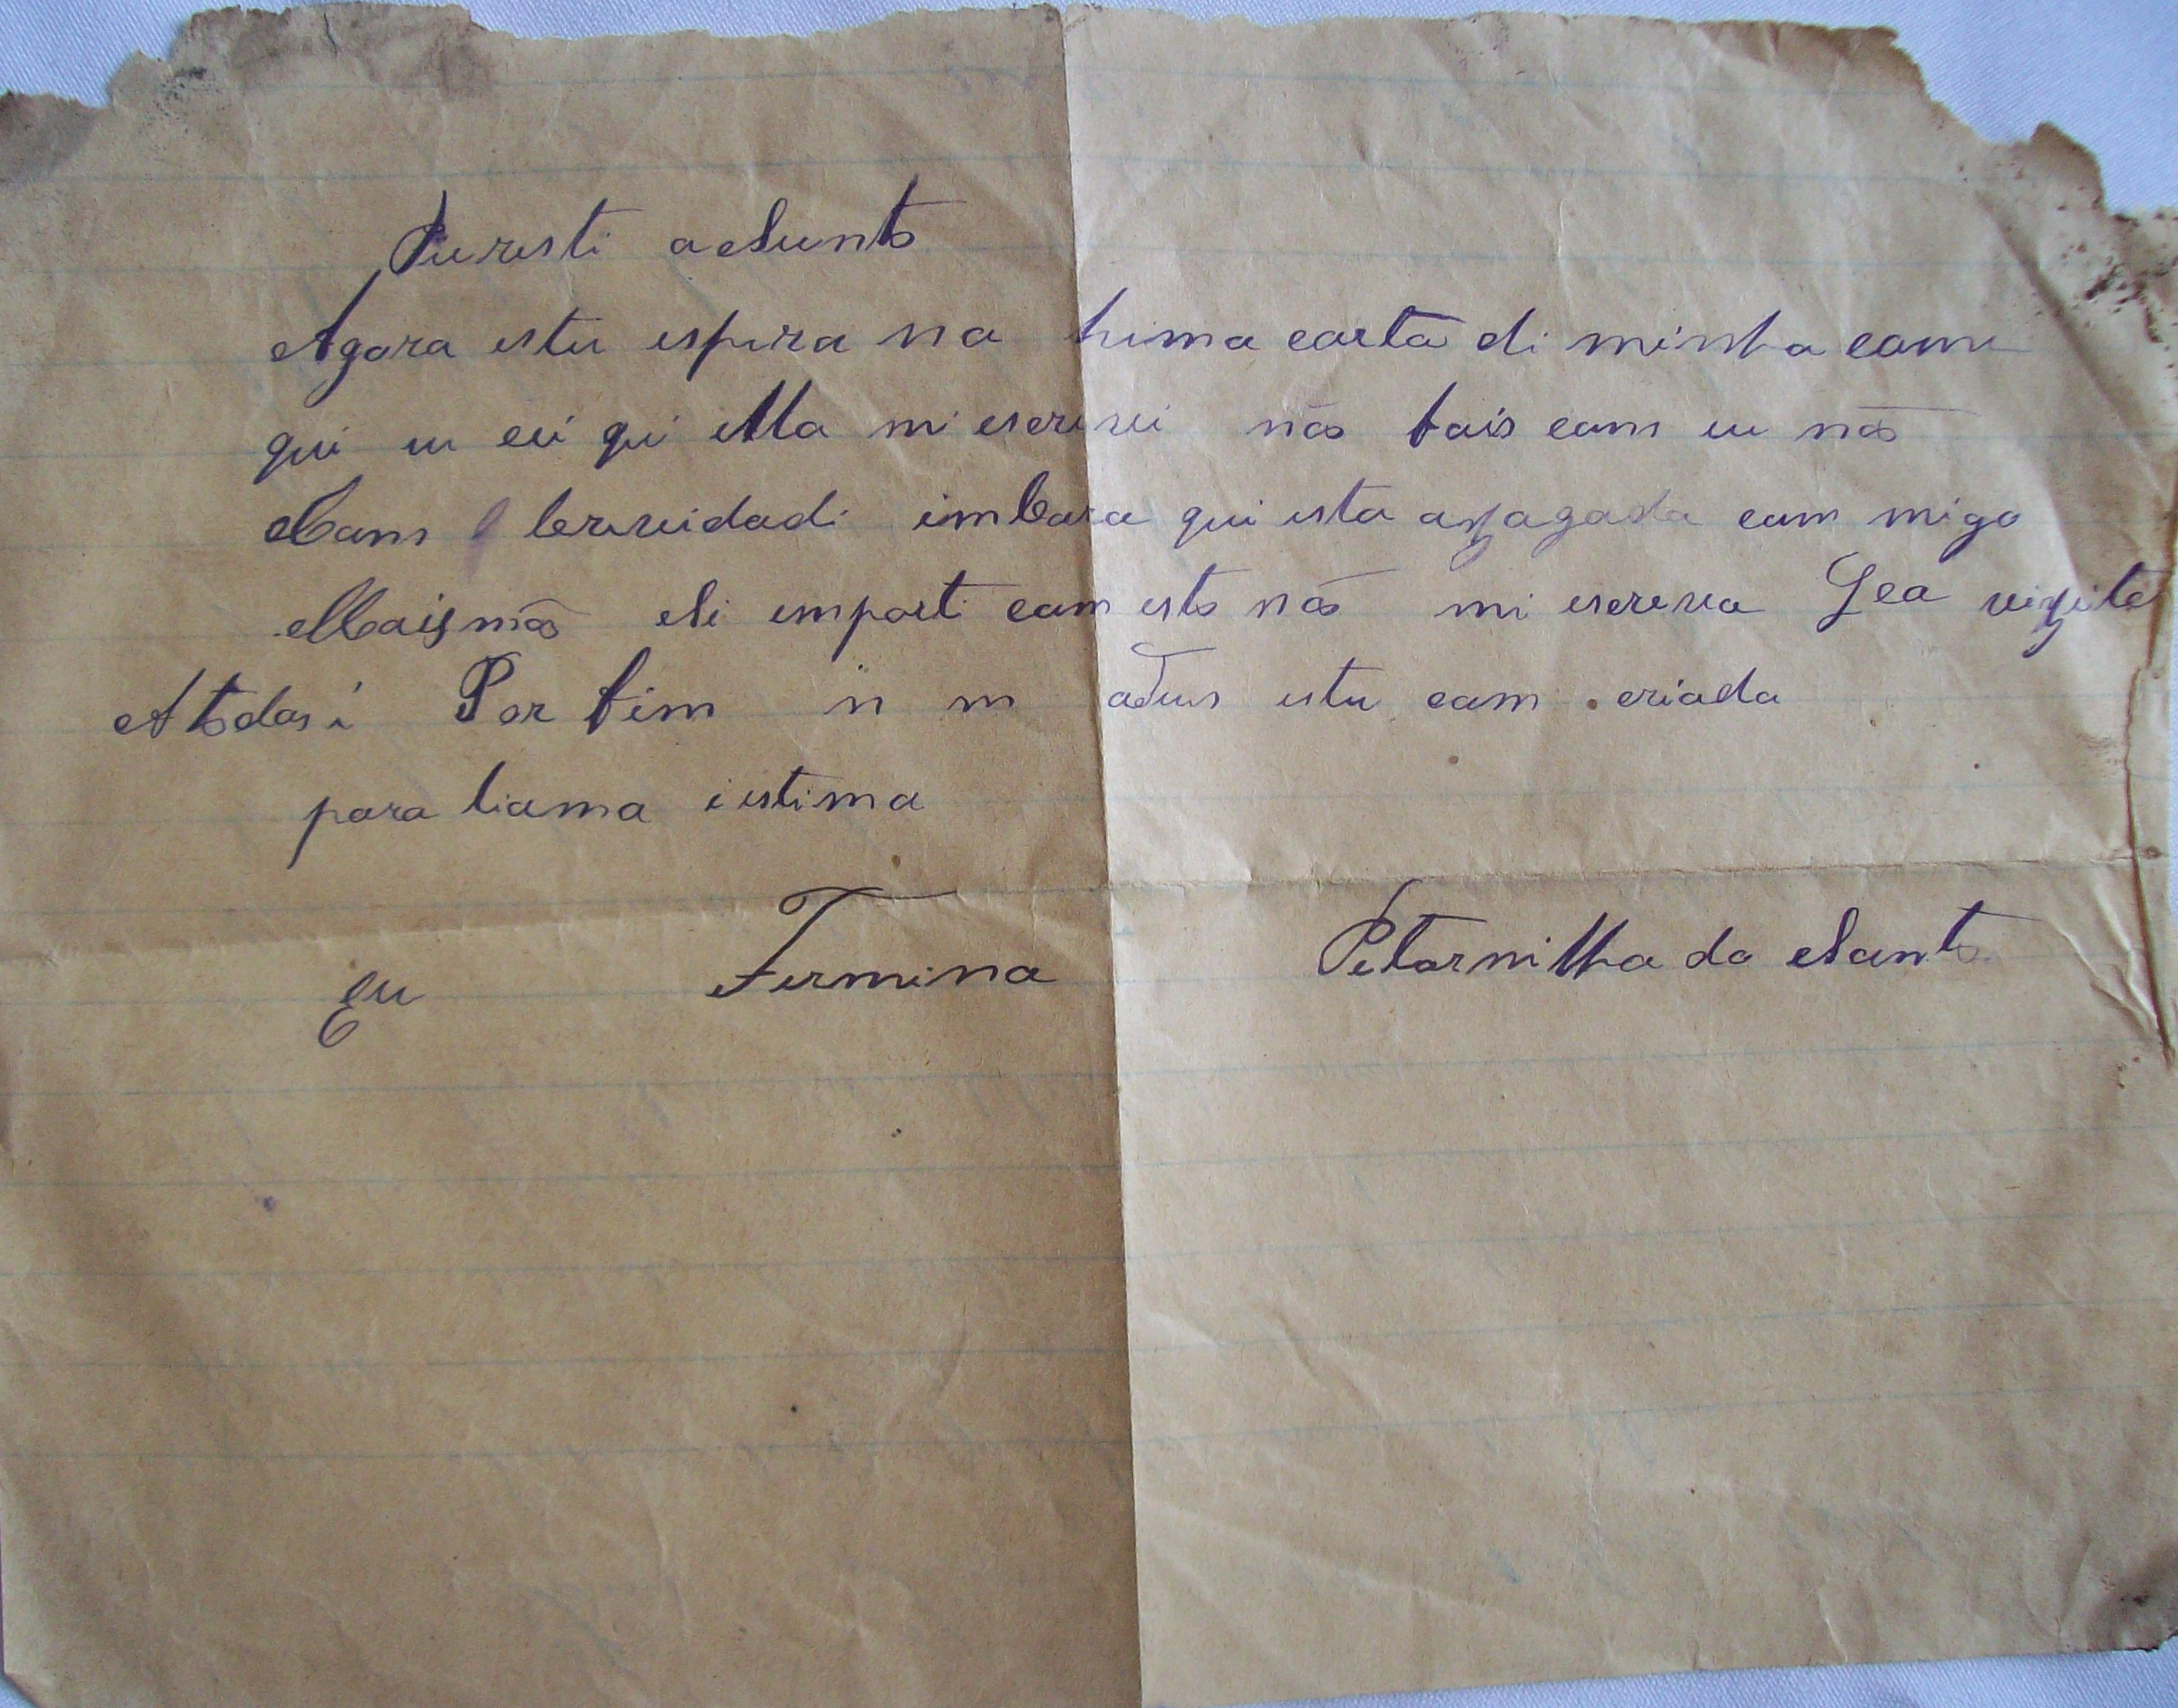 Puresti aSunto
Agora estu espera na huma carta di minha come
qui eu cei qui ella mi escrevi não fais com eu não
Com brevidadi imbora qui esta azagada com migo
Mais não Si emporti com esto não mi escreva Lea vizite
A todos i Por fim n m adeus estu com criada
para tiama i estima
Eu Fermina Petornilha do Santo